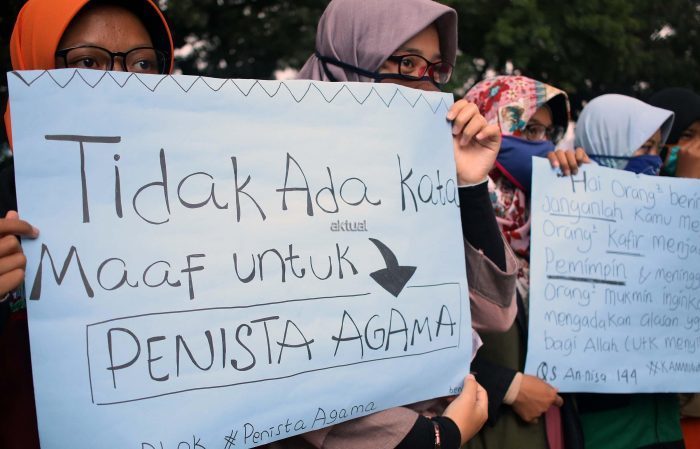 Tidak Ada Kata
aktual
Maaf untuk
PENISTA AGAMA
#Penista Agama
Hai Orang² beri
Janganlah kamu me
Orang² Kafir menja
Pemimpin & mening
Orang² mukmin ingink
mengadakan alasan ya
bagi Allah (UTK meny
QS An-nisa 144